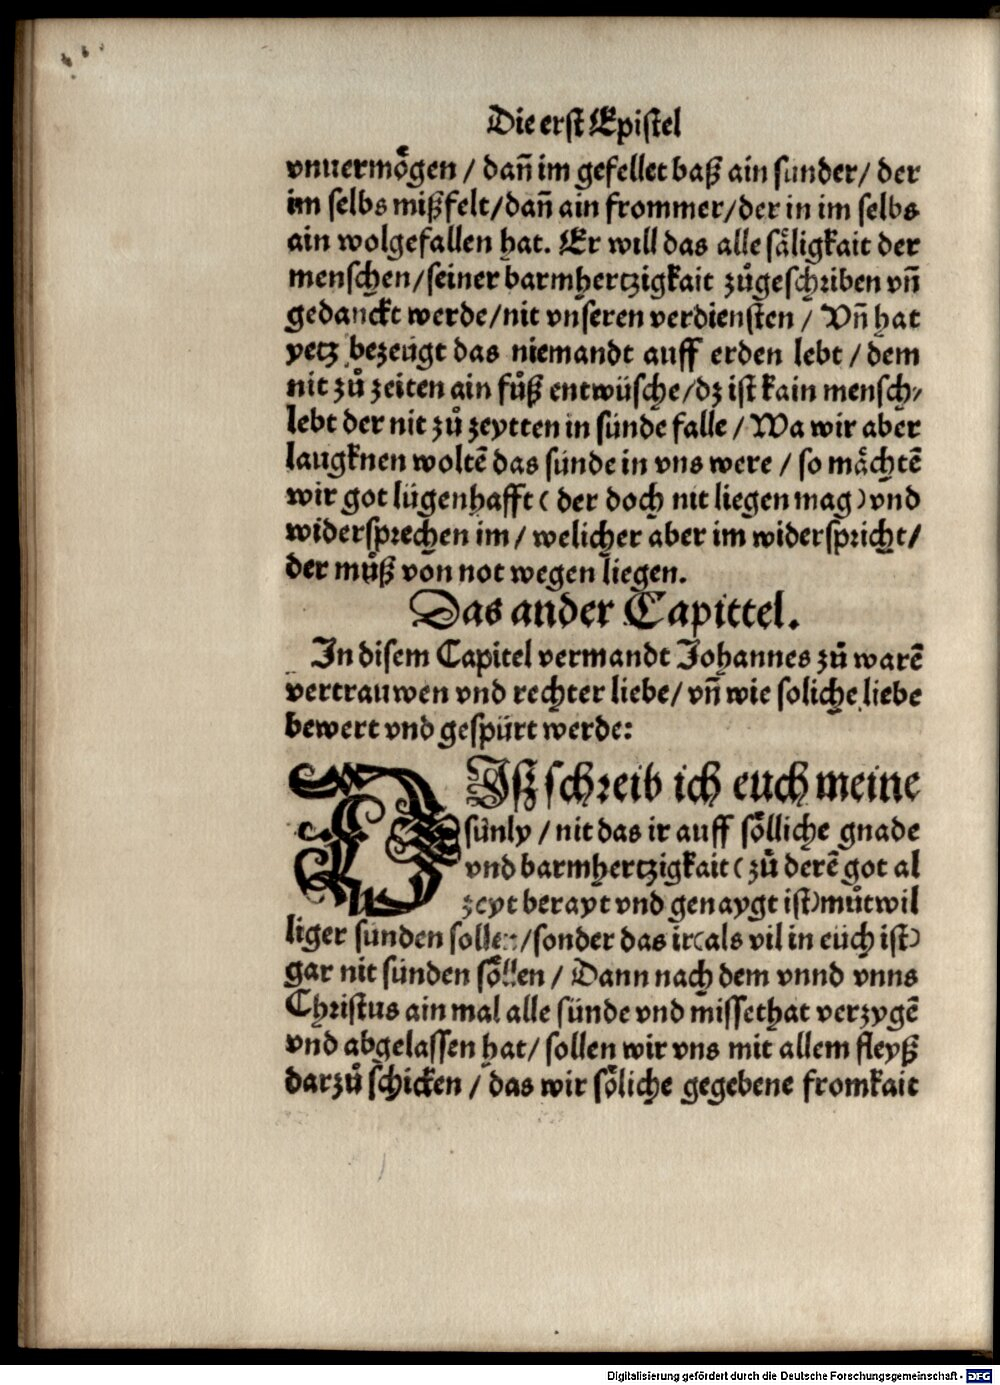 Die erst Epistel
vnuermoͤgen / dañ im gefellet baß ain sünder / der
im selbs mißfelt / dañ ain frommer / der in im selbs
ain wolgefallen hat. Er will das alle saͤligkait der
menschen / seiner barmhertzigkait zuͦgeschriben vñ
gedanckt werde / nit vnseren verdiensten / Vñ hat
yetz bezeügt das niemandt auff erden lebt / dem
nit zuͦ zeiten ain fuͦß entwüsche / dz ist kain mensch /
lebt der nit zuͦ zeytten in sünde falle / Wa wir aber
laugknen woltē das sünde in vns were / so maͤchtē
wir got lügenhafft ( der doch nit liegen mag ) vnd
widersprechen im / welicher aber im widerspricht /
der muͦß von not wegen liegen.
Das ander Capittel.
In disem Capitel vermandt Johannes zuͦ warē
vertrauwen vnd rechter liebe / vñ wie soliche liebe
bewert vnd gespürt werde:
DIß schreib ich euch meine
sünly / nit das ir auff soͤlliche gnade
vnd barmhertzigkait ( zuͦ derē got al
zeyt berayt vnd genaygt ist ) muͦtwil
liger sünden sollen / sonder das ir ( als vil in euch ist )
gar nit sünden soͤllen / Dann nach dem vnnd vnns
Christus ain mal alle sünde vnd missethat verzygē
vnd abgelassen hat / sollen wir vns mit allem fleyß
darzuͦ schicken / das wir soͤliche gegebene fromkait
Digitalisierung gefördert durch die Deutsche Forschungsgemeinschaft - DFG